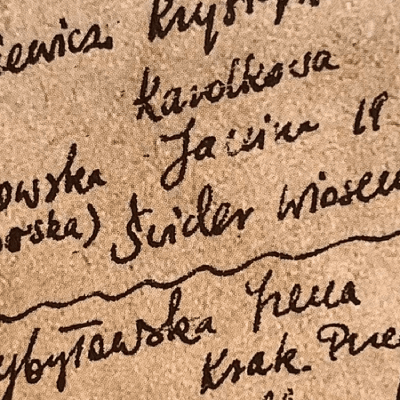 ewicz Kryst
Karolkowa
owska Janina 19
orska) Świder Wiosen
ybyłowska Irena
Krak. Prze